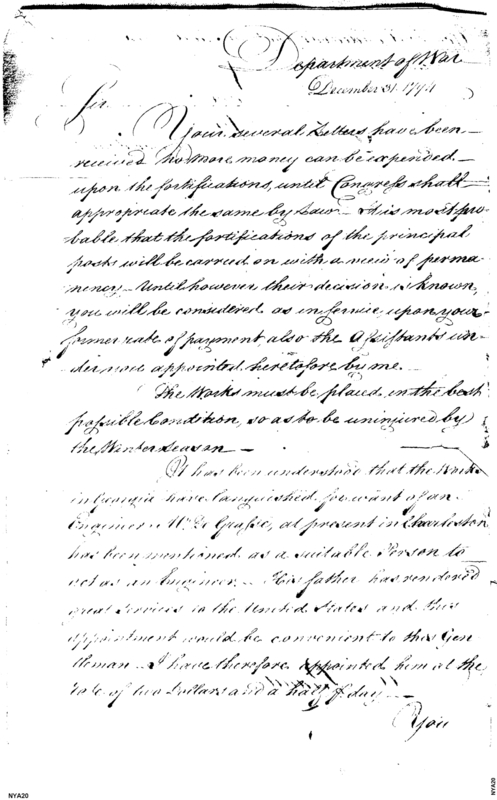 Department of War
December 31. 1794
Sir
Your several Letters have been
received no more money can be expended
upon the fortifications, until Congress shall
appropriate the same by Law — It is most pro-
bable that the fortifications of the principal
posts will be carried on with a view of perma-
nency — Until however their decision is known,
you will be considered as in service upon your
former rate of payment also the Assistants un-
der you appointed heretofore by me.
The Works must be placed in the best
possible Condition, so as to be uninjured by
the Winter season —
It has been understood that the Works
in Georgia have languished for want of an
Engineer. Mr. De Grasse, at present in Charleston
has been mentioned as a suitable Person to
act as an Engineer — His father has rendered
great services to the United States and this
appointment would be convenient to this Gen-
tleman — I have therefore appointed him at the
rate of two Dollars and a half P. day —
You
NYA20
NYA20